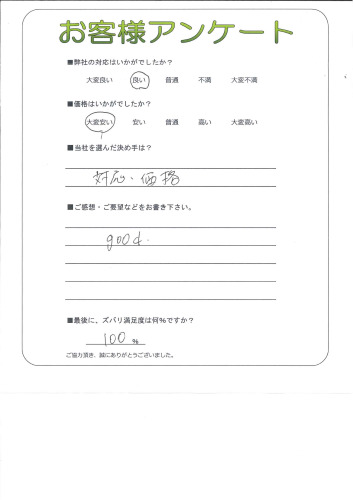 お客様アンケート
■弊社の対応はいかがでしたか？
大変良い 良い 普通 不満 大変不満
■価格はいかがでしたか？
大変安い 安い 普通 高い 大変高い
■当社を選んだ決め手は？
対応・価格
■ご感想・ご要望などをお書き下さい。
good.
■最後に、ズバリ満足度は何%ですか？
100 %
ご協力頂き、誠にありがとうございました。